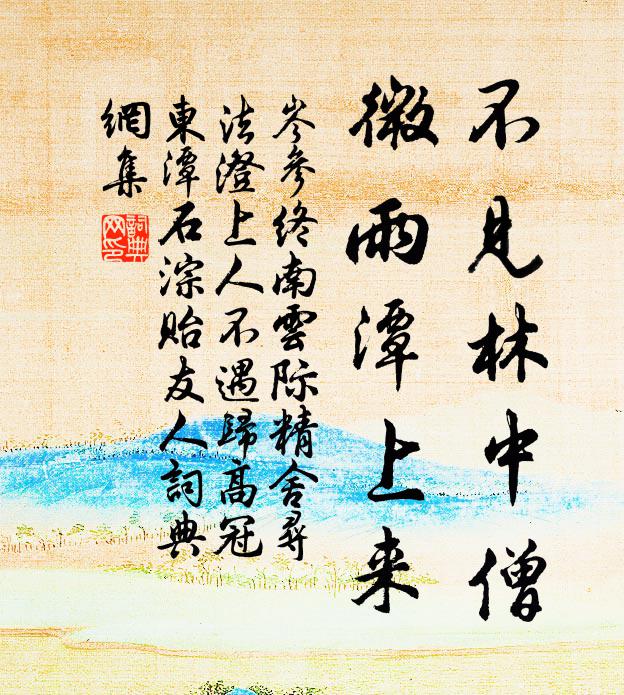 不見林中僧
微雨潭上来
岑參終南雲际精舍尋
法澄上人不遇歸高冠
東潭石淙貽友人詞典
網集
詞典
网印